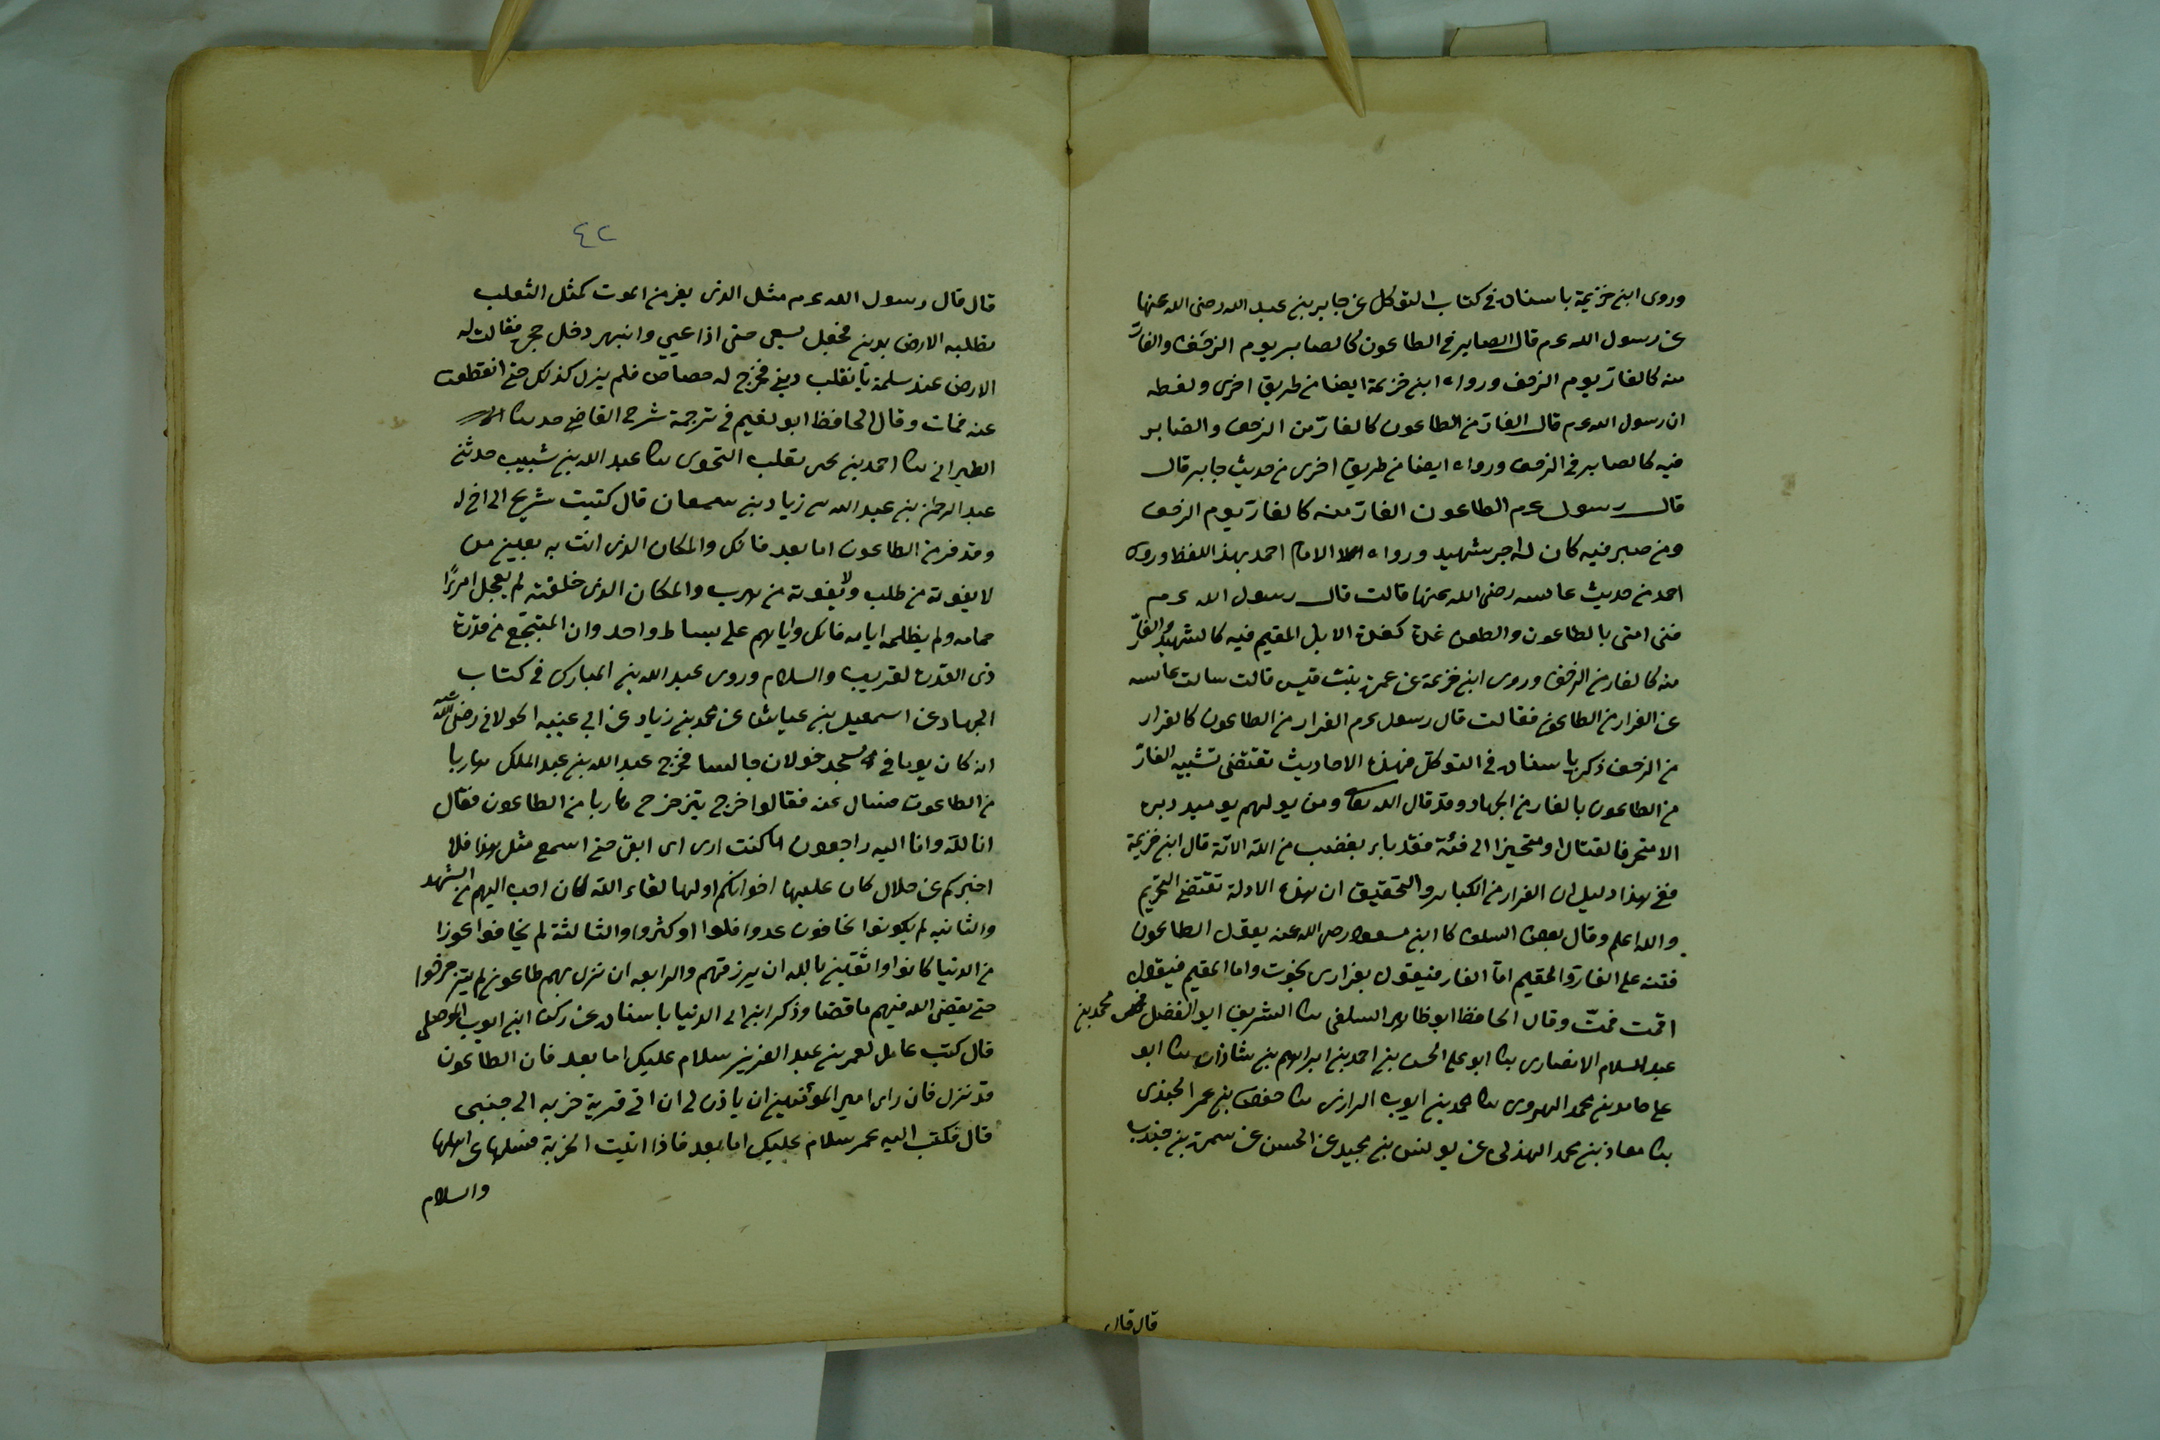 وروى ابن خزيمة باسناده في كتاب التوكل عن جابر بن عبد الله رضى الله عنها
عن رسول الله عم قال الصابر في الطاعون كالصابر يوم الزحف والفارّ
منه كالفارّ يوم الزحف ورواه ابن خزيمة ايضا من طريق اخرى ولفظه
ان رسول الله عم قال الفارّ من الطاعون كالفارّ من الزحف والصابر
فيه كالصابر في الزحف ورواه ايضا من طريق اخرى من حديث جابر قال
قال رسول عم الطاعون الفارّ منه كالفارّ يوم الزحف
ومن صبر فيه كان له اجر شهيد ورواه الامام احمد بهذا اللفظ وروى
احمد من حديث عايسه رضى الله عنها قالت قال رسول الله عم
فنى امتى بالطاعون والطعن غدة كغدة الابل المقيم فيه كالشهيد والفارّ
منه كالفار من الزحف وروى ابن خزيمة عن عمرة بنت قيس قالت سالت عايسه
عن الفرار من الطاعون فقالت قال رسول عم الفرار من الطاعون كالفرار
من الزحف ذكرها باسناده في التوكل فهذه الاحاديث تقتضى تشبيه الفارّ
من الطاعون بالفار من الجهاد وقد قال الله تعا ومن يولهم يوميد دبره
الا متحرفا لقتال او متحيزا الى فئة فقد باء بغضب من الله الآية قال ابن خزيمة
ففي هذا دليل ان الفرار من الكباير والتحقيق ان هذه الادلة تقتضى التحريم
والله اعلم وقال بعض السلف كا ابن مسعود رضى الله عنه يقول الطاعون
فتنه على الفارّ والمقيم امّا الفار فيقول بفرارى نجوت واما المقيم فيقول
اقمت فمتّ وقال الحافظ ابو طاهر السلفى سا الشريف ابو الفضل محمد بن
عبد السلام الانصارى سا ابو على الحسن بن احمد بن ابراهيم بن شاذان سا ابو
على حامد بن محمد الهروى سا محمد بن ايوب الرازى سا حفص بن عمر الجندى
سا معاذ بن محمد الهذلى عن يونس بن عبيد عن الحسن عن سمرة بن جندب
قال قال
٤٢
قال قال رسول الله عم مثل الذى يفر من الموت كمثل الثعلب
تطلبه الارض بدين فجعل يسعى حتى اذا عيي وانبهر دخل جحره فقالت له
الارض عند سلمة يا ثعلب دينى فخرج له حصاص فلم يزل كذلك حتى انقطعت
عنقه فمات وقال الحافظ ابو نعيم في ترجمة شرح القاضى حدثنا
الطبرانى سا احمد بن يحيى ثعلب النحوى سا عبد الله بن شبيب حدثنى
عبد الرحمن بن عبد الله عن زياد بن سمعان قال كتبت شريح الى اخ له
وقد فر من الطاعون اما بعد فانك والمكان الذى انت به بعين من
لا يفوته من طلب ولا يفوته من هرب والمكان الذى خلفته لم يعجل امرءًا
حمامه ولم يظلمه ايامه فانك واياهم على بساط واحد وان المنتجع من قدرة
ذى القدرة لقريب والسلام وروى عبد الله بن المبارك في كتاب
الجهاد عن اسمعيل بن عياش عن محمد بن زياد عن ابي عنبه الخولانى رضى الله
انه كان يوما في مسجد خولان جالسا فخرج عبد الله بن عبد الملك هاربا
من الطاعون فسال عنه فقالوا خرج يتزحزح هاربا من الطاعون فقال
انا لله وانا اليه راجعون ما كنت ارى انى ابقى حتى اسمع مثل هذا افلا
اخبركم عن خلال كان عليها اخوانكم اولها لقاء الله كان احب اليهم من الشهد
والثانيه لم يكونوا يخافون عدوا قلوا او كثروا والثالثة لم يخافوا عوزا
من الدنيا كانوا واثقين بالله ان يرزقهم والرابعه ان نزل بهم طاعون لم يتزحزحوا
حتى يقضى الله فيهم ما قضا وذكر ابن ابى الدنيا باسناده عن ابن ايوب الموصلى
قال كتب عامل لعمر بن عبد العزيز سلام عليك اما بعد فان الطاعون
قد نزل فان راى امير المؤمنين ان ياذن لى ان اتى قرية خربه الى جنبى
قال فكتب اليه عمر سلام عليك اما بعد فاذا اتيت الخربة فسلها عن اهلها
والسلام